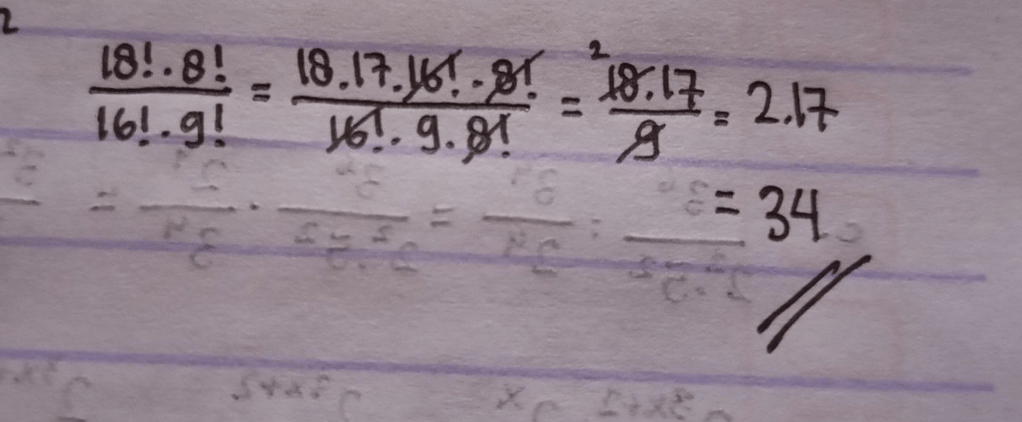 2
18!.8!/16!.9! = 18.17.16!.8!/16!.9.8! = ²18.17/9 = 2.17
= 34